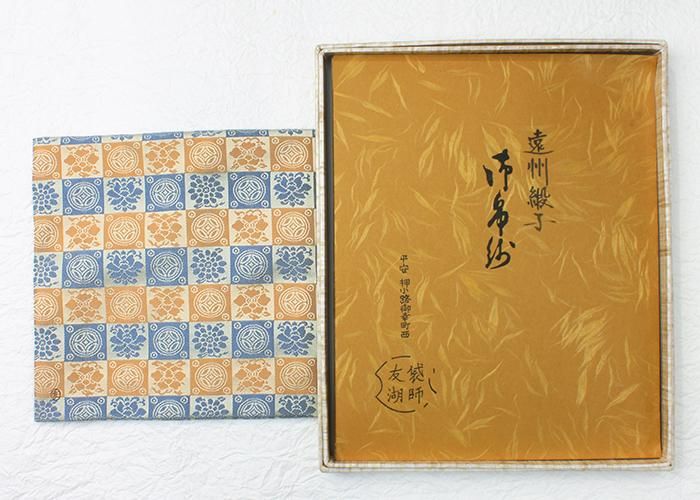 遠州緞子
御帛紗
平安 押小路御幸町西
袋師
友湖